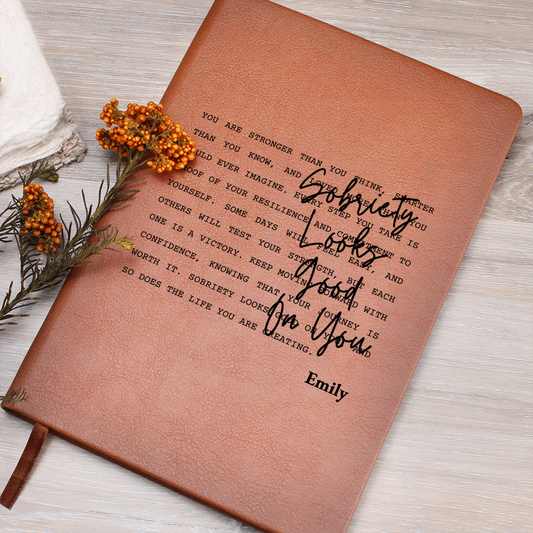 YOU ARE STRONGER THAN YOU THINK, SMARTER
THAN YOU KNOW, AND YOU
ULD EVER IMAGINE. EVERY STEP YOU TAKE IS
OOF OF YOUR RESILIENCE AND COMMITMENT TO
YOURSELF. SOME DAYS WILL FEEL EASY, AND
OTHERS WILL TEST YOUR STRENGTH, BUT EACH
ONE IS A VICTORY. KEEP MOVING FORWARD WITH
CONFIDENCE, KNOWING THAT YOUR JOURNEY IS
WORTH IT. SOBRIETY LOOKS GOOD ON YOU, AND
SO DOES THE LIFE YOU ARE CREATING.
Sobriety
Looks
Good
On You
Emily